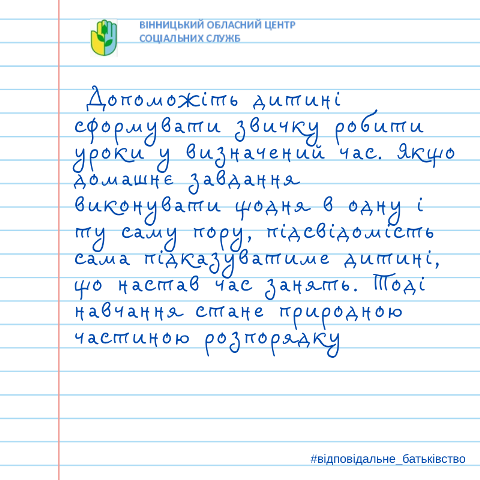 ВІННИЦЬКИЙ ОБЛАСНИЙ ЦЕНТР
СОЦІАЛЬНИХ СЛУЖБ
Допоможіть дитині
сформувати звичку робити
уроки у визначений час. Якщо
домашнє завдання
виконувати щодня в одну і
ту саму пору, підсвідомість
сама підказуватиме дитині,
що настав час занять. Тоді
навчання стане природною
частиною розпорядку
#відповідальне_батьківство